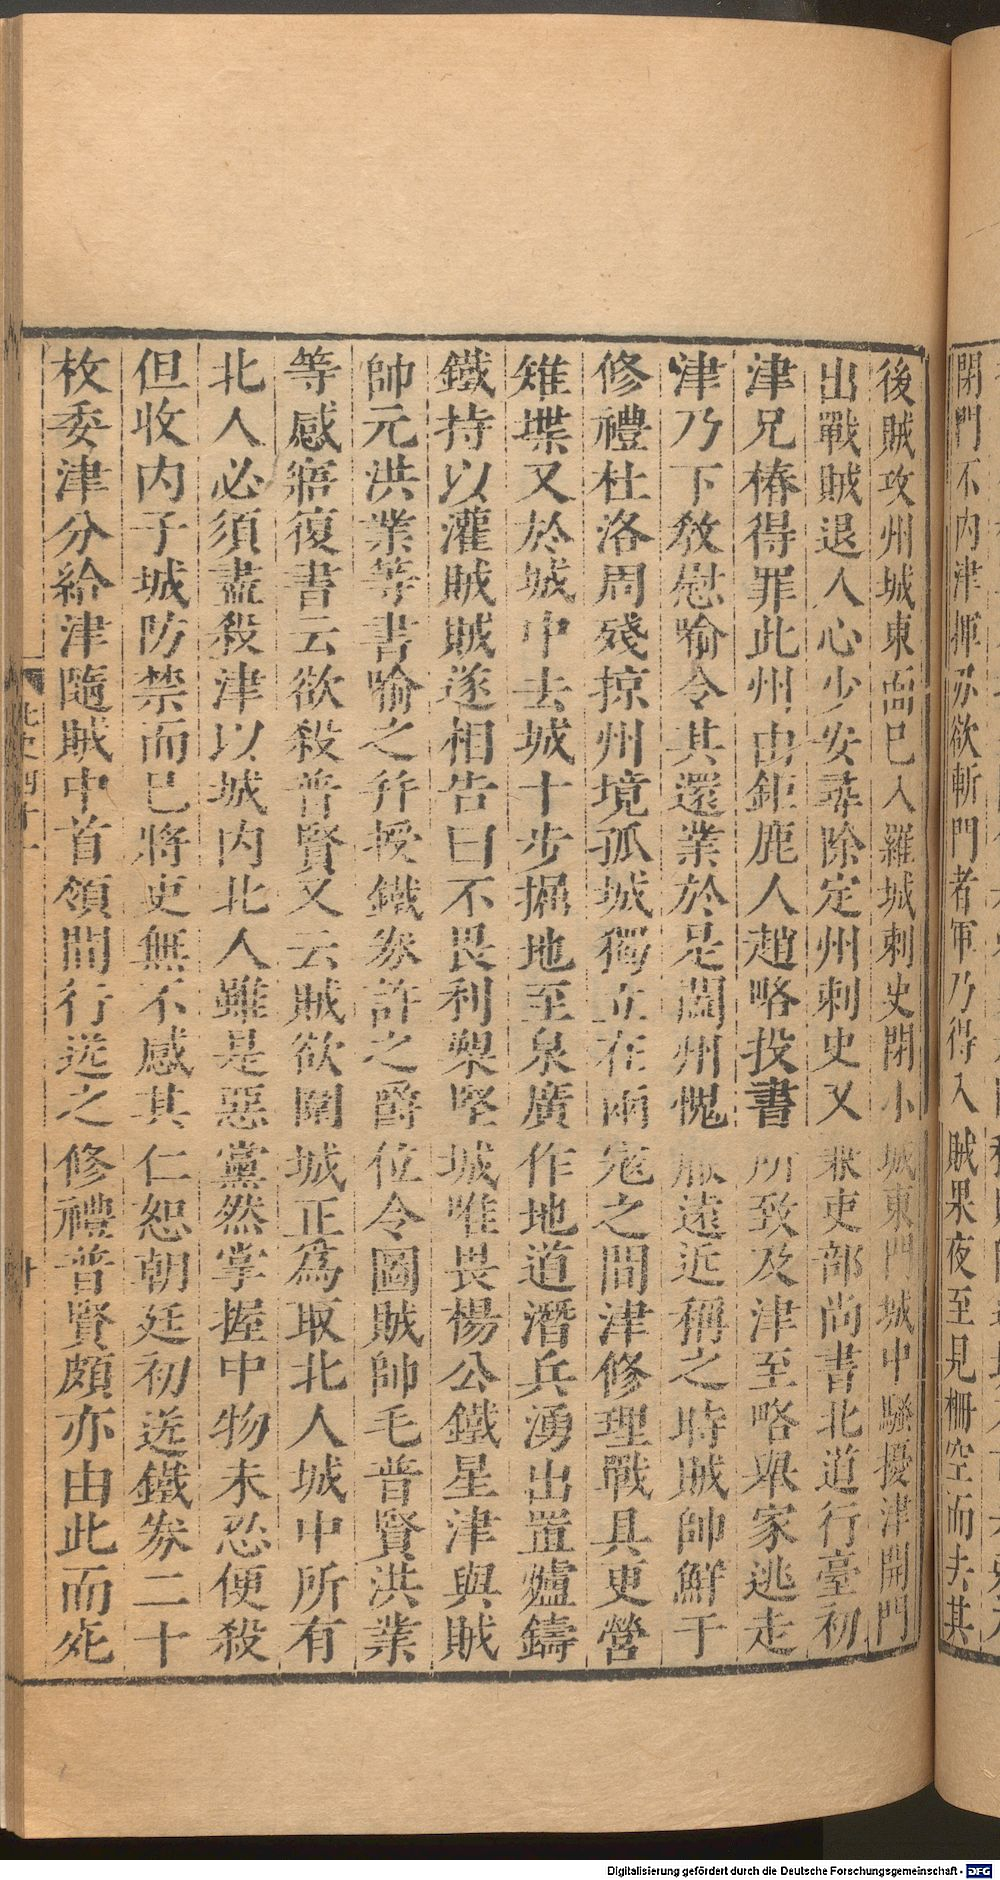 閉門不内津揮刃欲斬門者軍乃得入賊果夜至見柵空而去其
後賊攻州城東面已入羅城刺史閉小城東門城中騷擾津開門
出戰賊退人心少安尋除定州刺史又兼吏部尚書北道行臺初
津兄椿得罪此州由鉅鹿人趙略投書所致及津至略舉家逃走
津乃下敎慰喻令其還業於是闔州愧服遠近稱之時賊帥鮮于
修禮杜洛周殘掠州境孤城獨立在兩寇之間津修理戰具更營
雉堞又於城中去城十步掘地至泉廣作地道潛兵湧出置爐鑄
鐵持以灌賊賊遂相告曰不畏利槊堅城唯畏楊公鐵星津與賊
帥元洪業等書喻之幷授鐵券許之爵位令圖賊帥毛普賢洪業
等感寤復書云欲殺普賢又云賊欲圍城正爲取北人城中所有
北人必須盡殺津以城内北人雖是惡黨然掌握中物未忍便殺
但收内子城防禁而已將吏無不感其仁恕朝廷初送鐵券二十
枚委津分給津隨賊中首領間行送之修禮普賢頗亦由此而死
北史四十一
十
Digitalisierung gefördert durch die Deutsche Forschungsgemeinschaft - DFG